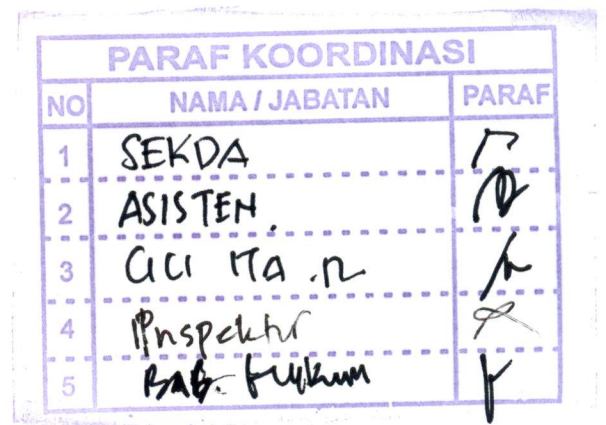 PARAF KOORDINASI
NO NAMA / JABATAN PARAF
1 SEKDA
2 ASISTEN.
3
4 Inspektur
5 Bag. Hukum